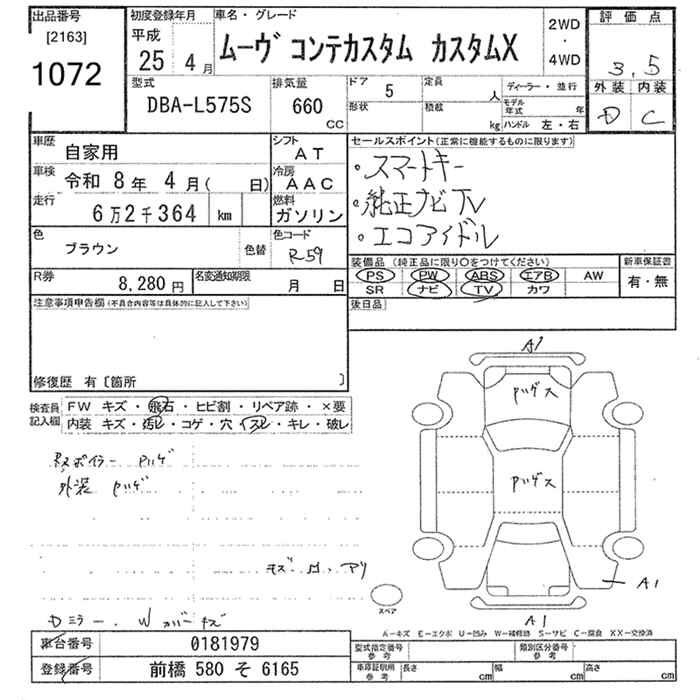 出品番号
[2163]
1072
初度登録年月
平成
25 4月
車名・グレード
ムーヴ コンテカスタム カスタムX
2WD
・
4WD
評価点
3.5
外装 内装
D C
型式
DBA-L575S
排気量
660
CC
ドア 5
形状
定員 人
積載 kg
ディーラー・並行
モデル年式 年
ハンドル 左・右
車歴
自家用
シフト
AT
車検
令和 8年 4月( 日)
冷房
AAC
走行
6万2千364 km
燃料
ガソリン
色
ブラウン
色替
色コード
R-59
R券
8,280円
名変通知期限
月 日
セールスポイント(正常に機能するものに限ります)
・スマートキー
・純正ナビTV
・エコアイドル
装備品(純正品に限り○をつけてください)
PS PW ABS エアB AW
SR ナビ TV カワ
新車保証書
有・無
後日品
注意事項申告欄(不具合内容等は具体的に記入して下さい)
修復歴 有〔箇所 〕
検査員記入欄
FW キズ・飛石・ヒビ割・リペア跡・×要
内装 キズ・汚レ・コゲ・穴・スレ・キレ・破レ
外装 Pハゲ
Dミラー.Wカバーキズ
A1
Pハゲス
Pハゲス
A1
A1
スペア
A-キズ E-エクボ U-凹み W-補修跡 S-サビ C-腐食 XX-交換済
車台番号
0181979
登録番号
前橋 580 そ 6165
型式指定番号
参考
類別区分番号
参考
車庫証明用
参考
長さ cm
幅 cm
高さ cm